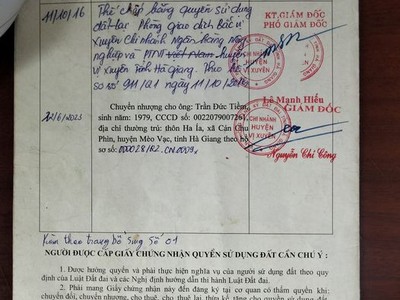 11/10/16
Thế chấp bằng quyền sử dụng
đất tại Phòng giao dịch Bắc Vị
Xuyên Chi nhánh Ngân hàng Nông
nghiệp và PTNT Việt Nam huyện
Vị Xuyên Tỉnh Hà Giang. Theo hồ
sơ số 911/Q1 ngày 11/10/2016
KT.GIÁM ĐỐC
PHÓ GIÁM ĐỐC
CHI NHÁNH
HUYỆN
VỊ XUYÊN
Lê Mạnh Hiếu
12/6/2023
Chuyển nhượng cho ông: Trần Đức Tiềm,
sinh năm: 1979, CCCD số: 002207900726,
địa chỉ thường trú: thôn Há Ía, xã Cán Chu
Phìn, huyện Mèo Vạc, tỉnh Hà Giang theo hồ
sơ số:
GIÁM ĐỐC
CHI NHÁNH
HUYỆN
VỊ XUYÊN
Nguyễn Chí Công
Kèm theo trang bổ sung số 01
NGƯỜI ĐƯỢC CẤP GIẤY CHỨNG NHẬN QUYỀN SỬ DỤNG ĐẤT CẦN CHÚ Ý :
1. Được hưởng quyền và phải thực hiện nghĩa vụ của người sử dụng đất theo quy
định của Luật Đất đai và các Nghị định hướng dẫn thi hành Luật Đất đai.
2. Phải mang Giấy chứng nhận này đến đăng ký tại cơ quan có thẩm quyền khi;
chuyển đổi, chuyển nhượng, cho thuê, cho thuê lại, thừa kế, tặng cho quyền sử dụng đất